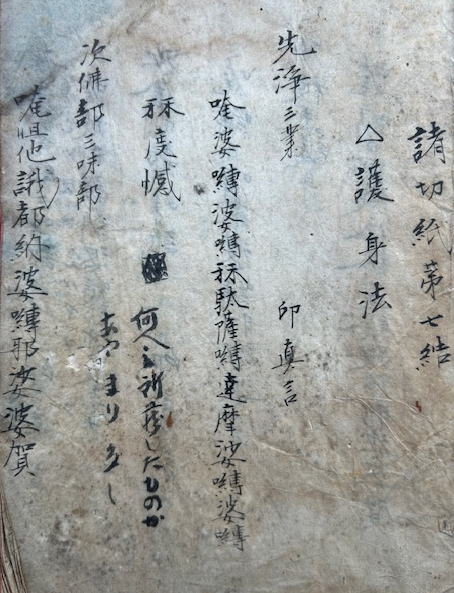 諸切紙第七結
△護身法
先浄三業 印真言
唵婆縛婆縛秫駄薩縛達摩娑縛婆縛
秫度憾 何へ祈祷したものか
あやまりなし
次佛部三味部
唵怛他誐都納婆縛耶娑婆賀